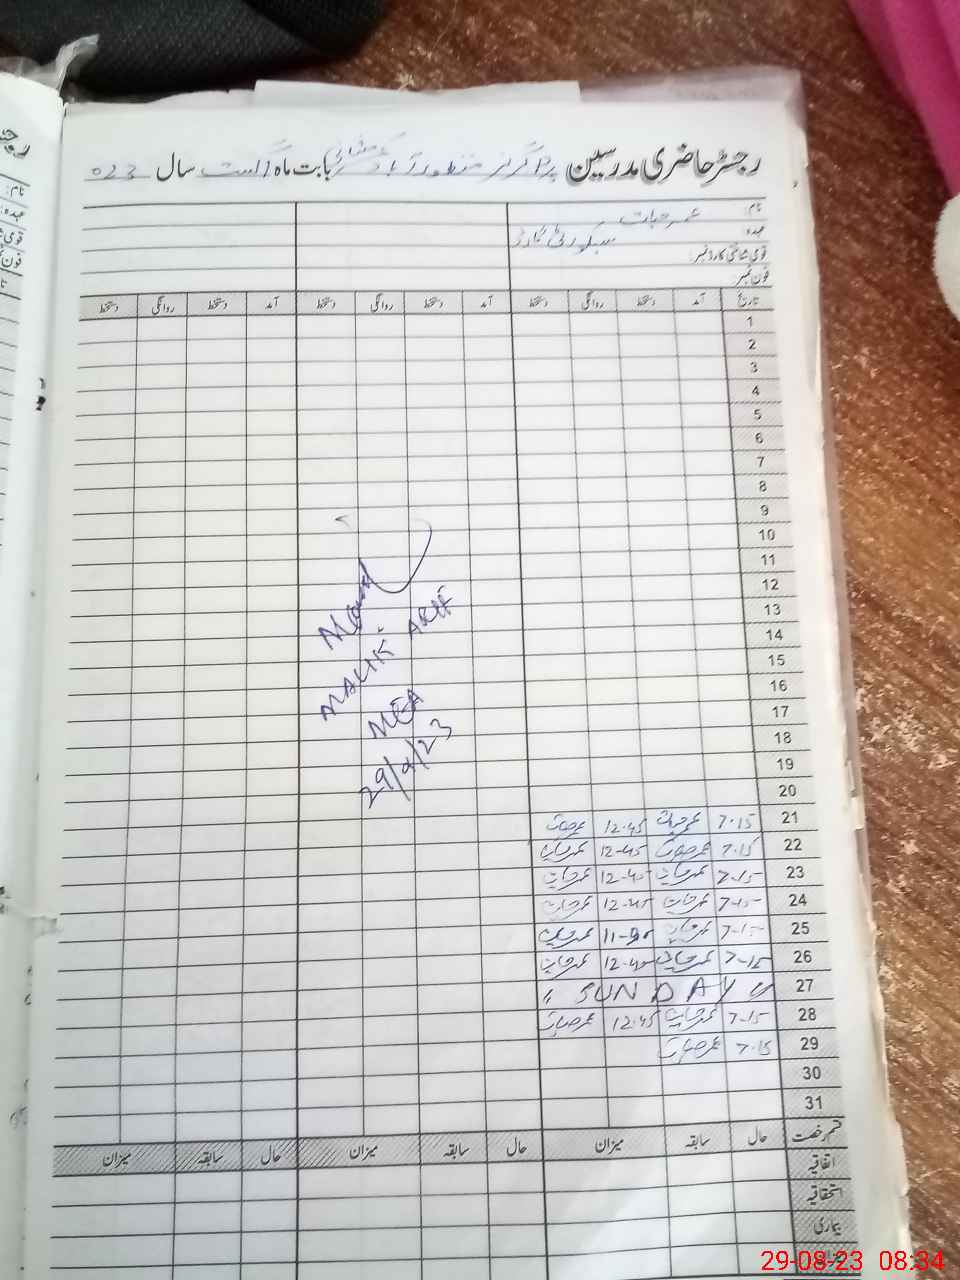 رجسٹر حاضری مدرسین پرا گرلز منظور آباد بابت ماہ اگست سال 023
نام: عمر حیات
عہدہ: سیکورٹی گارڈ
قومی شناختی کارڈ نمبر:
فون نمبر:
تاریخ آمد دستخط روانگی دستخط آمد دستخط روانگی دستخط آمد دستخط روانگی دستخط
1
2
3
4
5
6
7
8
9
10
11
12
13
14
15
16
17
18
19
20
21 7.15 عمر حیات 12.45 عمر حیات
22 7.15 عمر حیات 12-45 عمر حیات
23 7-15 عمر حیات 12-45 عمر حیات
24 7-15 عمر حیات 12-45 عمر حیات
25 7-15 عمر حیات عمر حیات
26 7-15 عمر حیات 12-45 عمر حیات
27 " SUNDAY "
28 7-15 عمر حیات 12.45 عمر حیات
29 7.15 عمر حیات
30
31
MALIK ARIF
MEA
29/8/23
قسم رخصت حال سابقہ میزان حال سابقہ میزان حال سابقہ میزان
اتفاقیہ
استحقاقیہ
بیماری
29-08-23 08:34